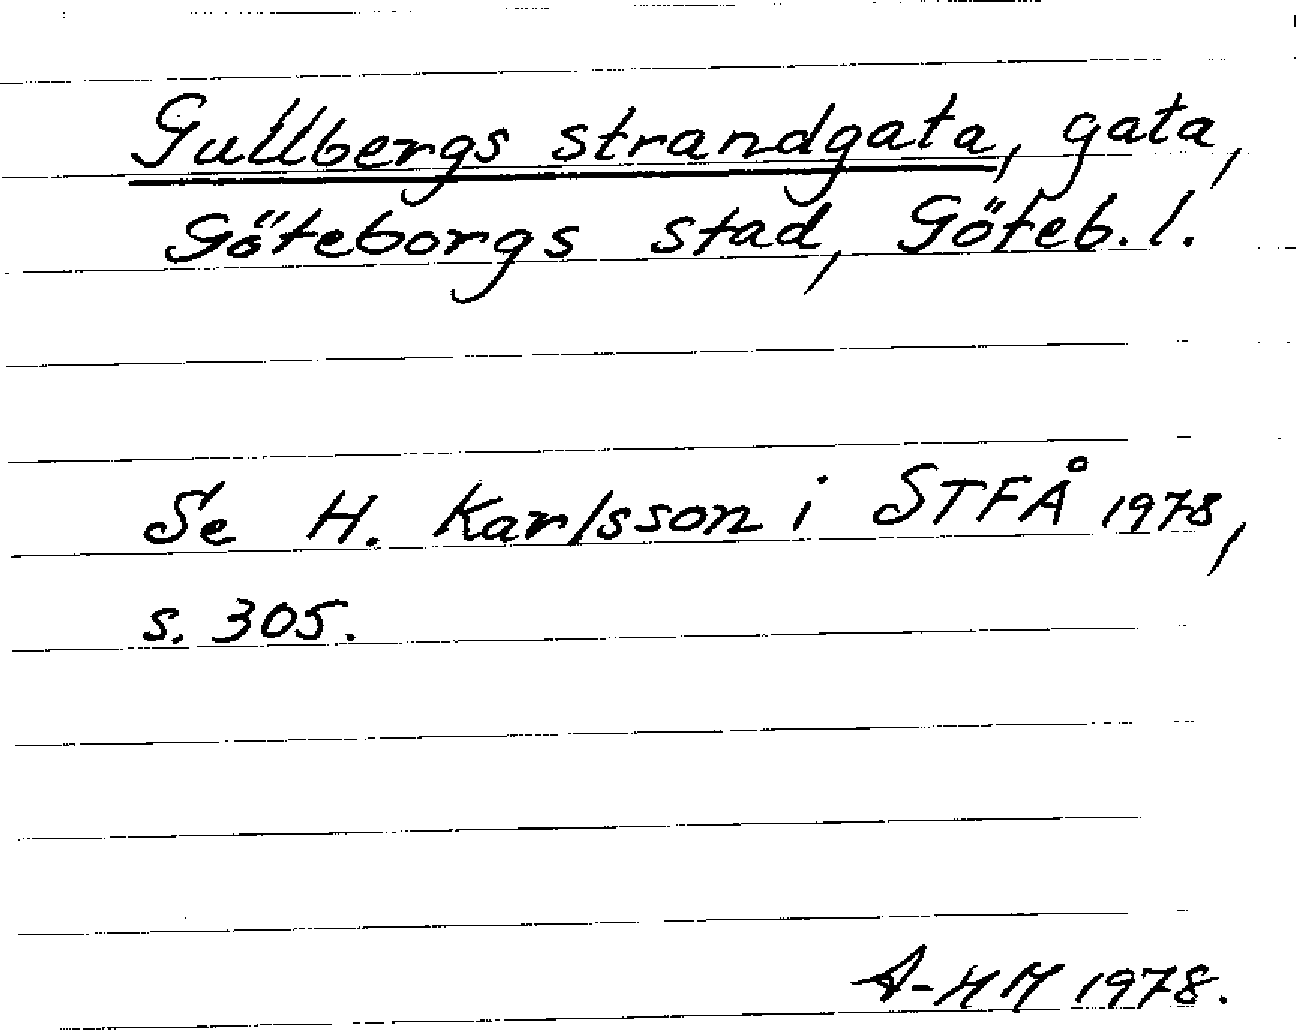 Gullbergs strandgata, gata,
Göteborgs stad, Göteb. l.
Se H. Karlsson i STFÅ 1978,
s. 305.
A-HM 1978.